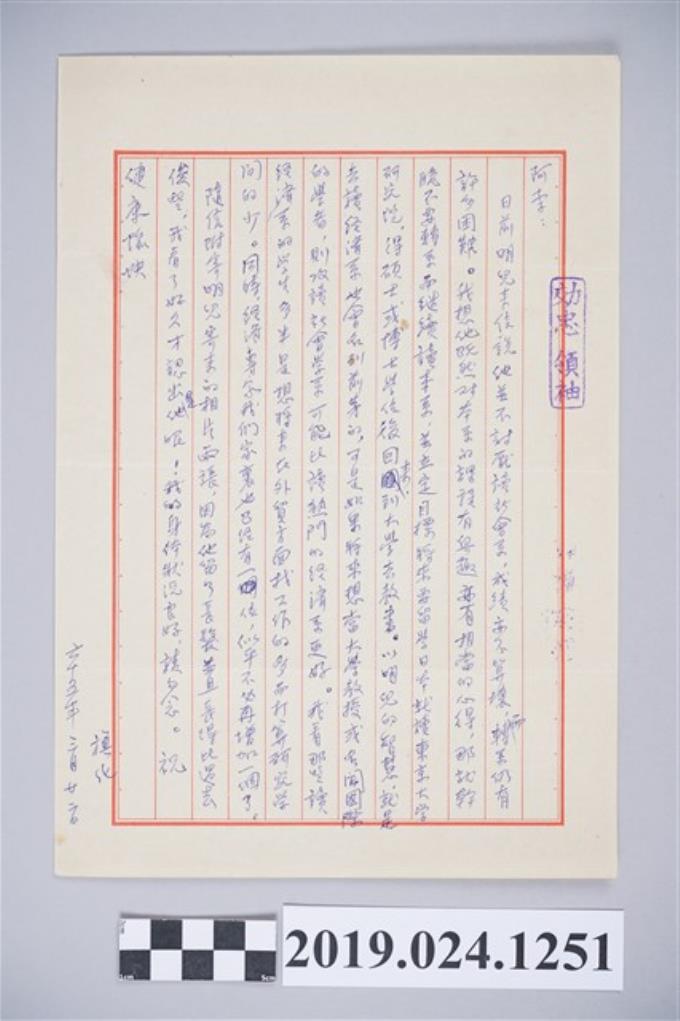 阿李：
日前明兒来信說他並不討厭讀社會系，成績亦不算壞，轉系仍有
許多困難。我想他既然对本系的課程有興趣並有相當的心得，那就幹
脆不要轉系而继續讀本系，並立定目標將来要留學日本就讀東京大學
研究院，得碩士或博士學位後回國来到大學去教書。以明兒的智慧，就是
去讀经濟系也會名列前茅的，可是如果將来想當大學教授或名聞國際
的學者，則攻讀社會学系可能比讀熱門的经濟系更好。我看那些讀
经濟系的学生多半是想將来在外貿方面找工作的多而打算研究学
问的少。同時，经濟專家我们家裏也已经有一位，似乎不必再增加一個了。
隨信附寄明兒寄来的相片兩張，因為他留了長髮並且長得比過去
俊些，我看了好久才認出是他呢！我的身体狀況良好，請勿念。祝
健康愉快
禎化
六十五年二月廿二日
効忠領袖
2019.024.1251
1cm
5cm